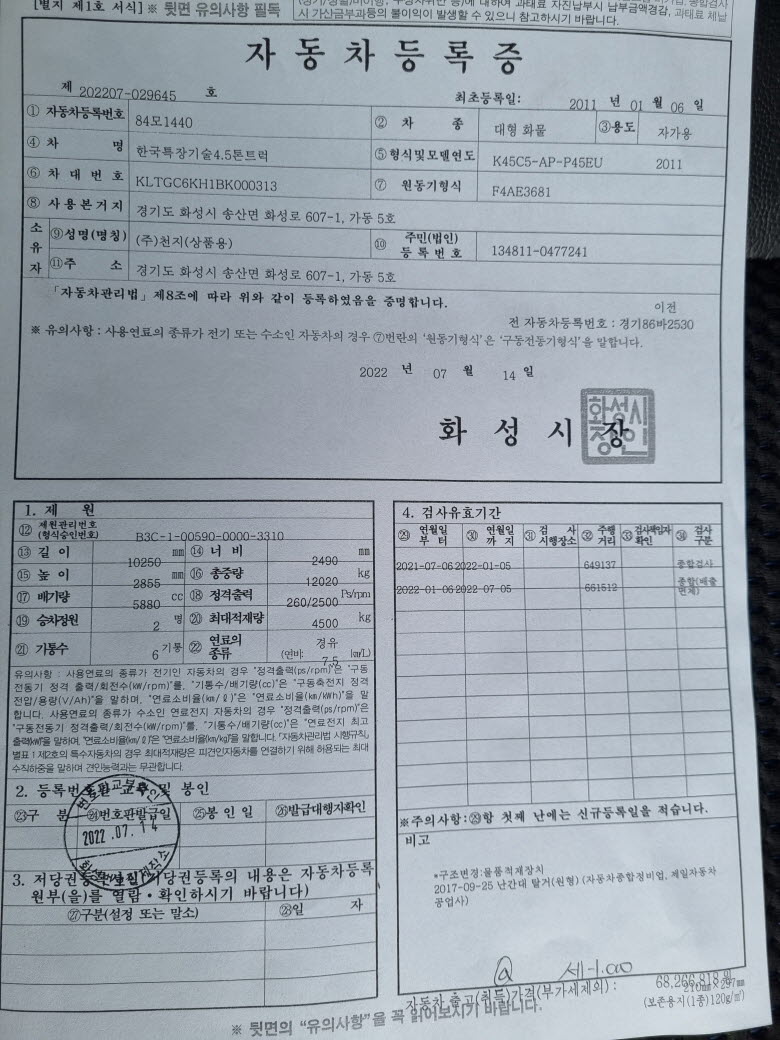 [별지 제1호 서식] ※ 뒷면 유의사항 필독
에 대하여 과태료 자진납부시 납부금액경감, 과태료 체납
시 가산금부과등의 불이익이 발생할 수 있으니 참고하시기 바랍니다.
자동차등록증
제 202207-029645 호
최초등록일: 2011 년 01 월 06 일
① 자동차등록번호 84모1440 ② 차 종 대형 화물 ③용도 자가용
④ 차 명 한국특장기술4.5톤트럭 ⑤형식및모델연도 K45C5-AP-P45EU 2011
⑥ 차 대 번 호 KLTGC6KH1BK000313 ⑦ 원동기형식 F4AE3681
⑧ 사 용 본 거 지 경기도 화성시 송산면 화성로 607-1, 가동 5호
소유자 ⑨성명(명칭) (주)천지(상품용) ⑩ 주민(법인)등록번호 134811-0477241
⑪주 소 경기도 화성시 송산면 화성로 607-1, 가동 5호
「자동차관리법」제8조에 따라 위와 같이 등록하였음을 증명합니다.
이전
전 자동차등록번호 : 경기86바2530
※ 유의사항 : 사용연료의 종류가 전기 또는 수소인 자동차의 경우 ⑦번란의 '원동기형식'은 '구동전동기형식'을 말합니다.
2022 년 07 월 14 일
화 성 시 장
화성시장인
1. 제 원
⑫ 제원관리번호(형식승인번호) B3C-1-00590-0000-3310
⑬ 길 이 10250 mm ⑭ 너 비 2490 mm
⑮ 높 이 2855 mm ⑯ 총중량 12020 kg
⑰ 배기량 5880 cc ⑱ 정격출력 260/2500 Ps/rpm
⑲ 승차정원 2 명 ⑳ 최대적재량 4500 kg
㉑ 기통수 6 기통 ㉒ 연료의 종류 경유 (연비: 7.5 km/L)
유의사항 : 사용연료의 종류가 전기인 자동차의 경우 "정격출력(ps/rpm)"은 "구동
전동기 정격 출력/회전수(kW/rpm)"를, "기통수/배기량(cc)"은 "구동축전지 정격
전압/용량(V/Ah)"을 말하며, "연료소비율(km/ℓ)"은 "연료소비율(km/kWh)"을 말
합니다. 사용연료의 종류가 수소인 연료전지 자동차의 경우 "정격출력(ps/rpm)"은
"구동전동기 정격출력/회전수(kW/rpm)"를, "기통수/배기량(cc)"은 "연료전지 최고
출력(kW)"을 말하며, "연료소비율(km/ℓ)"은 "연료소비율(km/kg)"을 말합니다. 「자동차관리법 시행규칙」
별표 1 제2호의 특수자동차의 경우 최대적재량은 피견인자동차를 연결하기 위해 허용되는 최대
수직하중을 말하며 견인능력과는 무관합니다.
2. 등록번호판 교부 및 봉인
㉓구 분 ㉔번호판발급일 ㉕봉 인 일 ㉖발급대행자확인
2022.07.14
3. 저당권등록사실(저당권등록의 내용은 자동차등록
원부(을)를 열람・확인하시기 바랍니다)
㉗구분(설정 또는 말소) ㉘일 자
4. 검사유효기간
㉙ 연월일부터 ㉚ 연월일까지 ㉛ 검사시행장소 ㉜ 주행거리 ㉝ 검사책임자확인 ㉞ 검사구분
2021-07-06 2022-01-05 649137 종합검사
2022-01-06 2022-07-05 661512 종합(배출면제)
※주의사항:㉙항 첫째 난에는 신규등록일을 적습니다.
비고
*구조변경:물품적재장치
2017-09-25 난간대 탈거(원형) (자동차종합정비업, 제일자동차
공업사)
자동차 출고(취득)가격(부가세제외) : 68,266,818 원
210㎜×297㎜
(보존용지(1종)120g/㎡)
※ 뒷면의 "유의사항"을 꼭 읽어보시기 바랍니다.